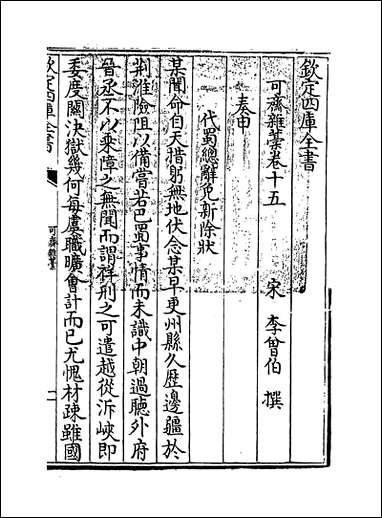 欽定四庫全書
可齋雜藁卷十五
宋 李曾伯 撰
奏申
代蜀總辭免新除狀
某聞命自天措躬無地伏念某早更州縣久歴邊疆於
荆淮險阻以備嘗若巴蜀事情而未識中朝過聽外府
晉丞不以乘障之無聞而謂祥刑之可遣越從泝峽即
委度關決獄幾何每虞職曠會計而已尤愧材疎雖國
欽定四庫全書
可齋雜藁
一